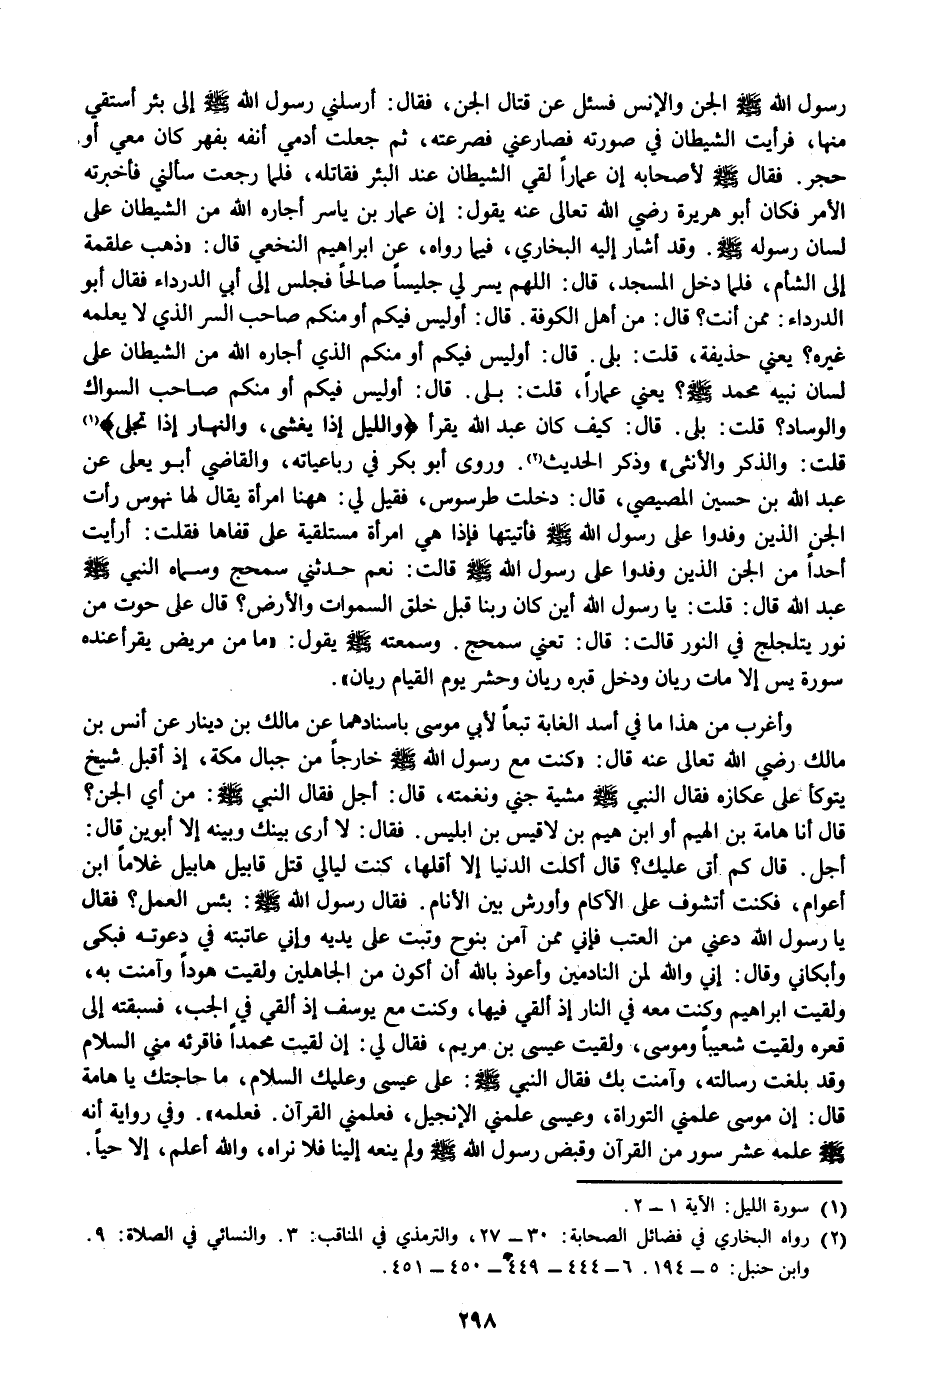 رسول الله ﷺ الجن والإنس فسئل عن قتال الجن، فقال: أرسلني رسول الله ﷺ إلى بئر أستقي
منها، فرأيت الشيطان في صورته فصارعني فصرعته، ثم جعلت أدمي أنفه بفهر كان معي أو
حجر. فقال ﷺ لأصحابه إن عماراً لقي الشيطان عند البئر فقاتله، فلما رجعت سألني فأخبرته
الأمر فكان أبو هريرة رضي الله تعالى عنه يقول: إن عمار بن ياسر أجاره الله من الشيطان على
لسان رسوله ﷺ. وقد أشار إليه البخاري، فيما رواه، عن ابراهيم النخعي قال: «ذهب علقمة
إلى الشأم، فلما دخل المسجد، قال: اللهم يسر لي جليساً صالحاً فجلس إلى أبي الدرداء فقال أبو
الدرداء: ممن أنت؟ قال: من أهل الكوفة. قال: أوليس فيكم أو منكم صاحب السر الذي لا يعلمه
غيره؟ يعني حذيفة، قلت: بلى. قال: أوليس فيكم أو منكم الذي أجاره الله من الشيطان على
لسان نبيه محمد ﷺ؟ يعني عماراً، قلت: بلى. قال: أوليس فيكم أو منكم صاحب السواك
والوساد؟ قلت: بلى. قال: كيف كان عبد الله يقرأ ﴿والليل إذا يغشى، والنهار إذا تجلى﴾(١)
قلت: والذكر والأنثى» وذكر الحديث(٢). وروى أبو بكر في رباعياته، والقاضي أبو يعلى عن
عبد الله بن حسين المصيصي، قال: دخلت طرسوس، فقيل لي: ههنا امرأة يقال لها نهوس رأت
الجن الذين وفدوا على رسول الله ﷺ فأتيتها فإذا هي امرأة مستلقية على قفاها فقلت: أرأيت
أحداً من الجن الذين وفدوا على رسول الله ﷺ قالت: نعم حدثني سمحج وسماه النبي ﷺ
عبد الله قال: قلت: يا رسول الله أين كان ربنا قبل خلق السموات والأرض؟ قال على حوت من
نور يتلجلج في النور قالت: قال: تعني سمحج. وسمعته ﷺ يقول: «ما من مريض يقرأ عنده
سورة يس إلا مات ريان ودخل قبره ريان وحشر يوم القيام ريان».
وأغرب من هذا ما في أسد الغابة تبعاً لأبي موسى باسنادهما عن مالك بن دينار عن أنس بن
مالك رضي الله تعالى عنه قال: «كنت مع رسول الله ﷺ خارجاً من جبال مكة، إذ أقبل شيخ
يتوكأ على عكازه فقال النبي ﷺ مشية جني ونغمته، قال: أجل فقال النبي ﷺ: من أي الجن؟
قال أنا هامة بن الهيم أو ابن هيم بن لاقيس بن ابليس. فقال: لا أرى بينك وبينه إلا أبوين قال:
أجل. قال كم أتى عليك؟ قال أكلت الدنيا إلا أقلها، كنت ليالي قتل قابيل هابيل غلاماً ابن
أعوام، فكنت أتشوف على الآكام وأورش بين الأنام. فقال رسول الله ﷺ: بئس العمل؟ فقال
يا رسول الله دعني من العتب فإني ممن آمن بنوح وتبت على يديه وإني عاتبته في دعوته فبكى
وأبكاني وقال: إني والله لمن النادمين وأعوذ بالله أن أكون من الجاهلين ولقيت هوداً وآمنت به،
ولقيت ابراهيم وكنت معه في النار إذ ألقي فيها، وكنت مع يوسف إذ ألقي في الجب، فسبقته إلى
قعره ولقيت شعيباً وموسى، ولقيت عيسى بن مريم، فقال لي: إن لقيت محمداً فاقرئه مني السلام
وقد بلغت رسالته، وآمنت بك فقال النبي ﷺ: على عيسى وعليك السلام، ما حاجتك يا هامة
قال: إن موسى علمني التوراة، وعيسى علمني الإنجيل، فعلمني القرآن. فعلمه». وفي رواية أنه
ﷺ علمه عشر سور من القرآن وقبض رسول الله ﷺ ولم ينعه إلينا فلا نراه، والله أعلم، إلا حياً.
(١) سورة الليل: الآية ١ – ٢.
(٢) رواه البخاري في فضائل الصحابة: ٣٠ – ٢٧، والترمذي في المناقب: ٣. والنسائي في الصلاة: ٩.
وابن حنبل: ٥ – ١٩٤. ٦ – ٤٤٤ – ٤٤٩ – ٤٥٠ – ٤٥١.
٢٩٨